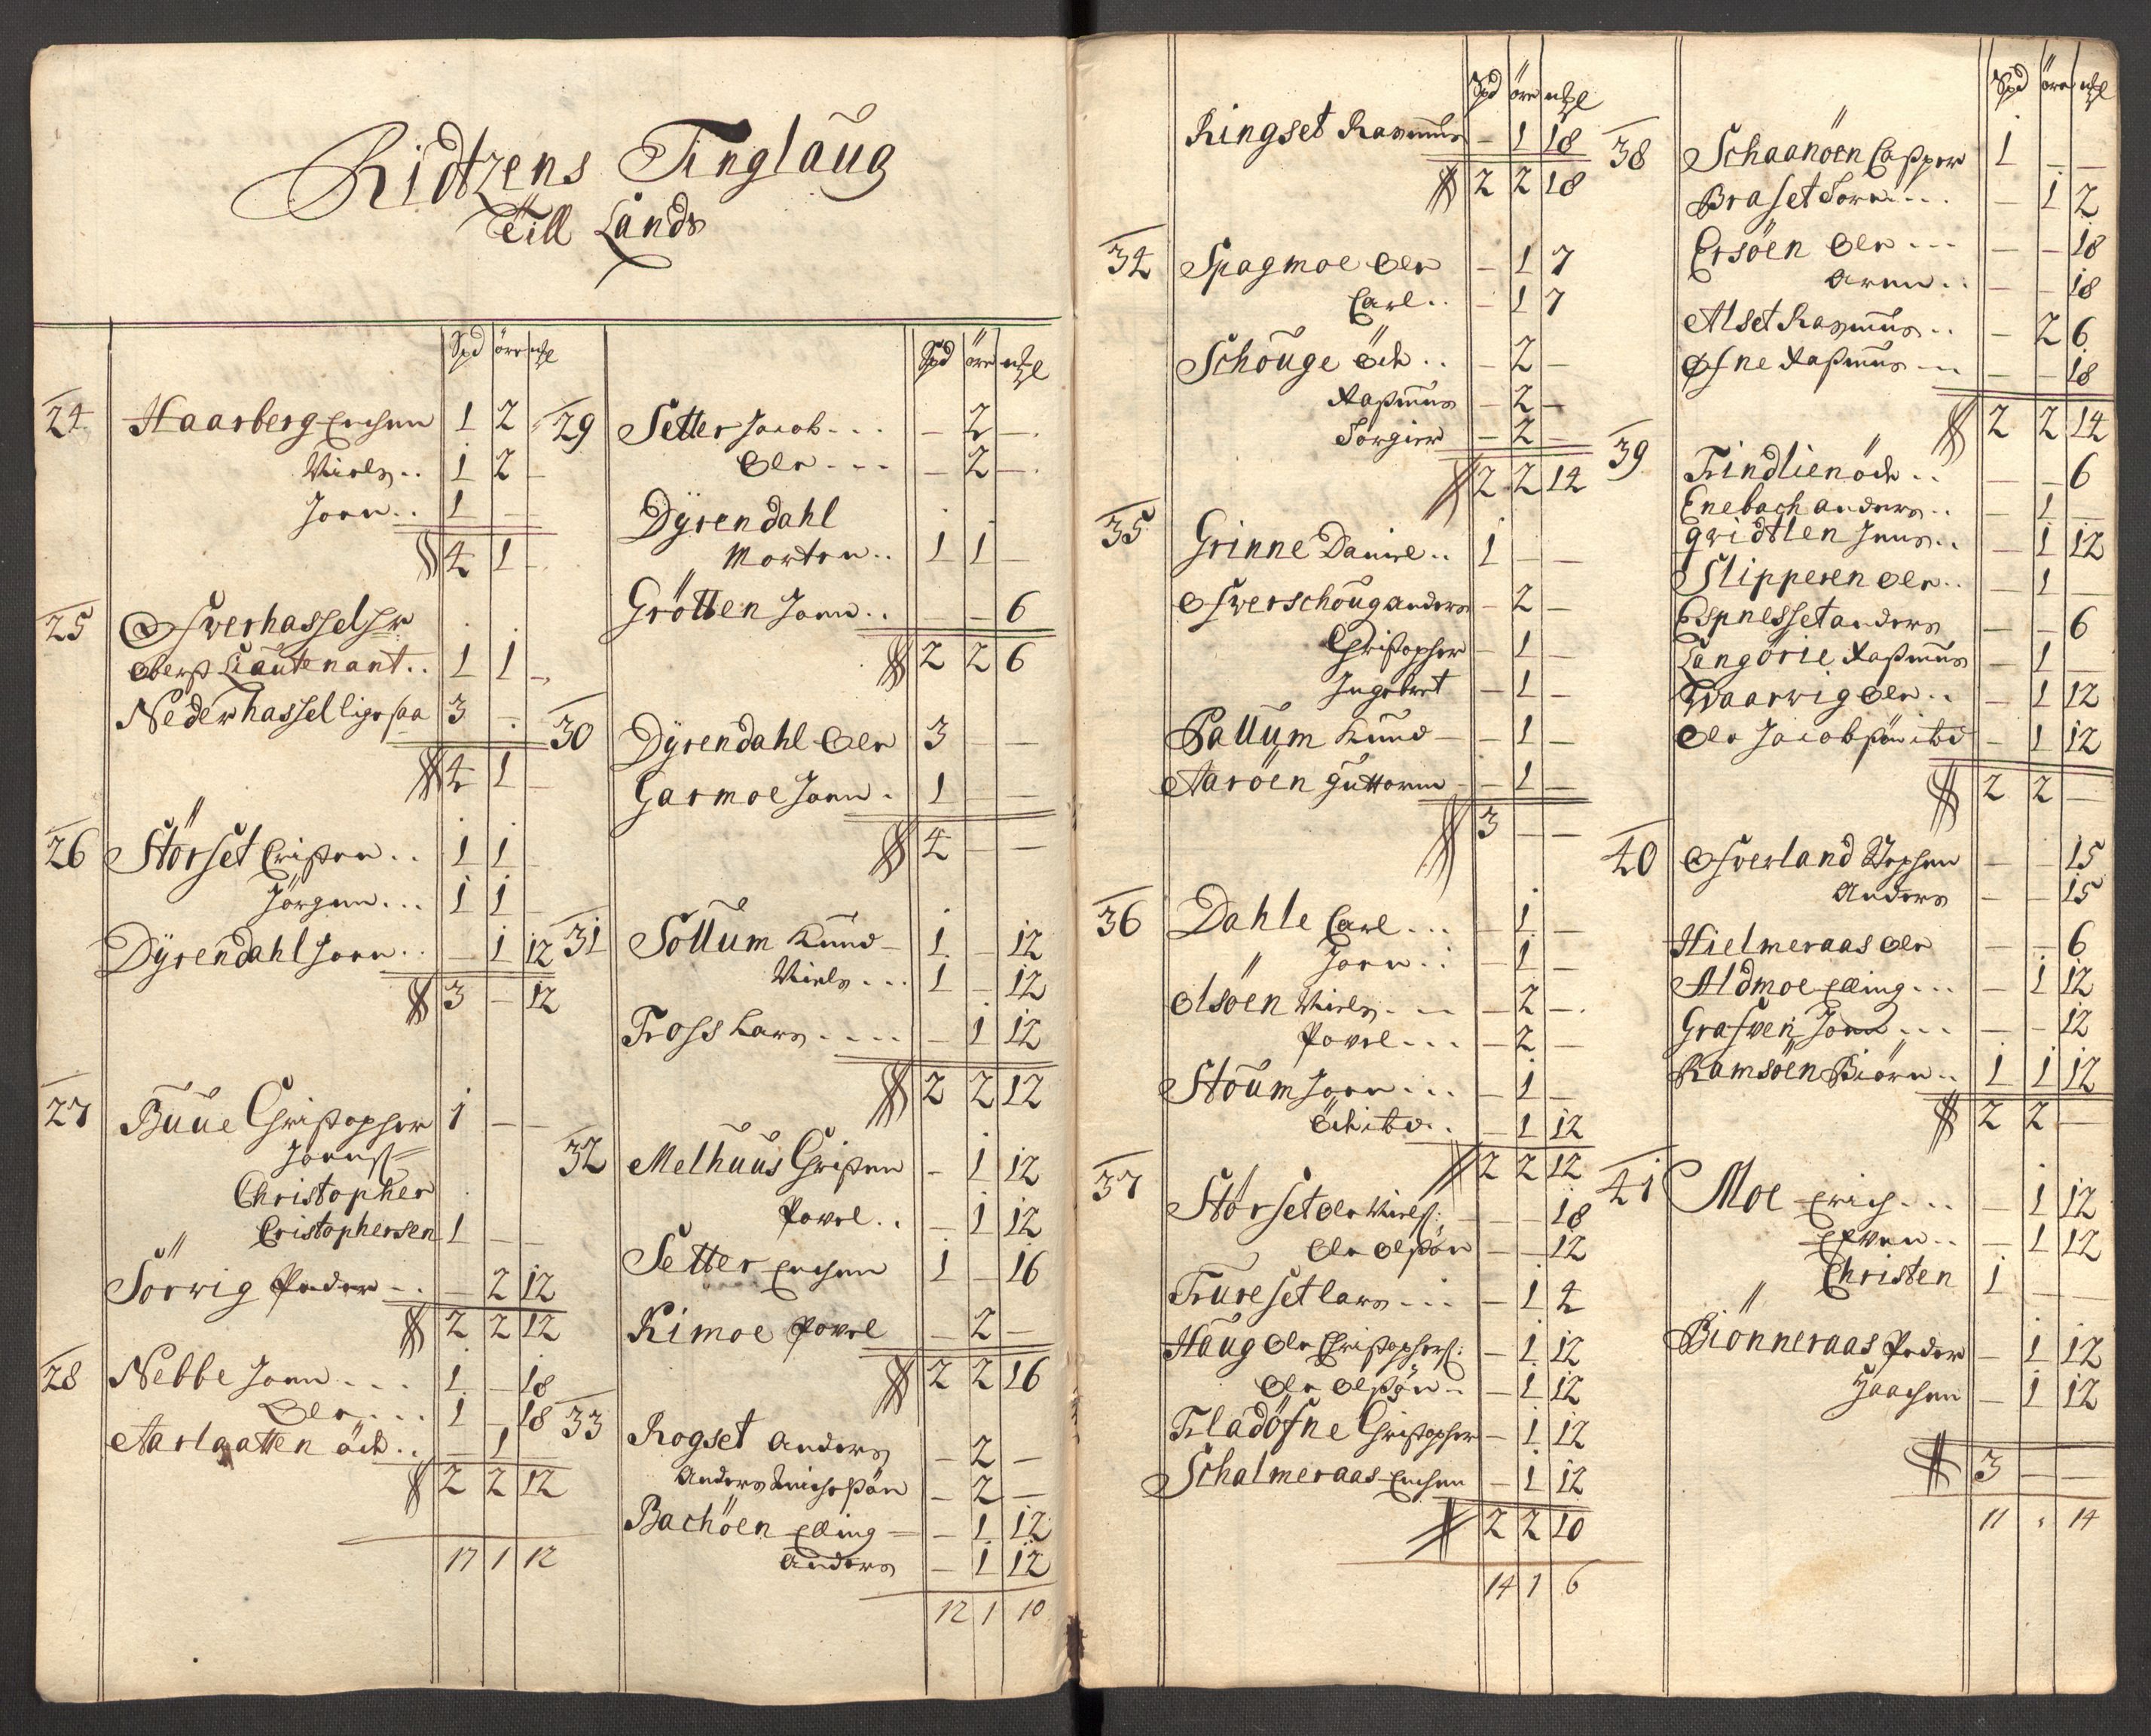 Ridtzens Tinglaug
Till Lands
Spd öre mkl
24 Haarberg Erichen 1 2 -
Niels .. 1 2 -
Joen .. 1 - -
4 1 -
25 Ofwerhassel Hr
oberst Liautenant .. 1 1 -
Nederhassel ligr paa 3 -
4 1 -
26 Störset Cristen .. 1 1 -
Jörgen ... 1 1 -
Dÿrendahl Joen .. - 1 12
3 - 12
27 Buue Christopher 1 - -
Joens
Christopher
Cristophersen 1 - -
Sörwig Peder - . - 2 12
2 2 12
28 Nebbe Joen ... 1 - 18
Ole ... 1 - 18
Aarlaatten öde .. - 1
2 2 12
17 1 12
Spd öre mkl
29 Setter Jacob ... - 2 -
Ole ... - 2 -
Dÿrendahl
Morten .. 1 1 -
Grötten Joen .. - - 6
2 2 6
30 Dÿrendahl Ole 3 - -
Garmoe Joen . 1 - -
4 - -
31 Sollum Knud - 1 - 12
Niels ... 1 - 12
Fross Lars .... - 1 12
2 2 12
32 Melhuus Cristen - 1 12
Powel .. - 1 12
Setter Erichen 1 - 16
Kimoe Powel - 2 -
2 2 16
33 Rogset Anders - 2 -
Anders - 2 -
Bachöen Elling - - 1 12
Anders - 1 12
12 1 10
Spd öre mkl
Ringset Rasmus - 1 18
2 2 18
34 Spagmoe Ole - 1 7
Carl .. - 1 7
Schouge öde .. - 2 -
Rasmus - 2 -
Torgier - 2 -
2 2 14
35 Grinne Daniel .. 1 - -
Ofwerschoug Anders - 2 -
Christopher - 1 -
Ingebret - 1 -
Pallum Knud - - 1 -
Aaröen Guttorm - 1 -
3 - -
36 Dahle Carl ... - 1 -
Joen .. - 1 -
Olsöen Niels ... - 2 -
Powel ... - 2 -
Stoum Joen ... - 1 -
öde ibid . - 1 12
2 2 12
37 Störset Ole Niels: - - 18
Ole Olsön - - 12
Trureset Lars ... - 1 4
Haug Ole Christophers: - 1 12
Ole Olsön - - 1 12
Fladöfne Christopher - 1 12
Schalmeraas Erichen - 1 12
2 2 10
14 1 6
Spd öre mkl
38 Schaanöen Casper 1 - -
Braset Tore ... - 1 2
Ersöen Ole ... - - 18
Arne .. - - 18
Alset Rasmus .. - 2 6
Ofne Rasmus ... - - 18
2 2 14
39 Trindlien öde .. - - 6
Enebach Anders .. - 1 -
Gridtlen Jens .. - 1 12
Slipperen Ole .. - 1 -
Espnesset Anders - - 6
Langörie Rasmus - 1 -
Waarwig Ole .. - 1 12
Ole Jacobsön ibid - 1 12
2 2 -
40 Ofwerland Stephen - - 15
Anders - - 15
Hielmeraas Ole - - 6
Aldmoe Elling ... - 1 12
Grafven Joen ... - - 12
Ramsöen Biörn .. 1 1 12
2 2 -
41 Moe Erich ... - 1 12
Efwen .. - 1 12
Christen 1 - -
Biönneraas Peder - 1 12
Haachen - 1 12
3 - -
11 . 14